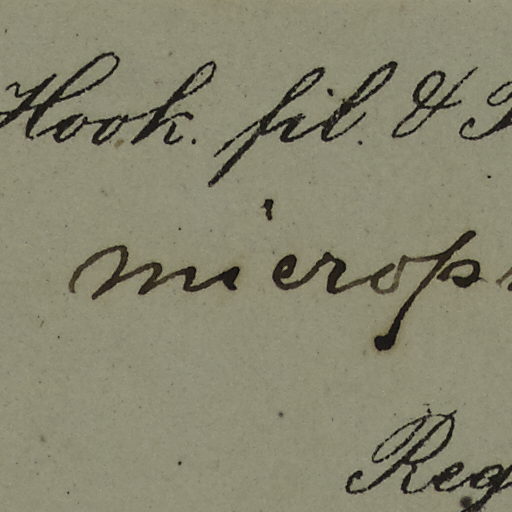 Hook. fil. &
microp
Reg